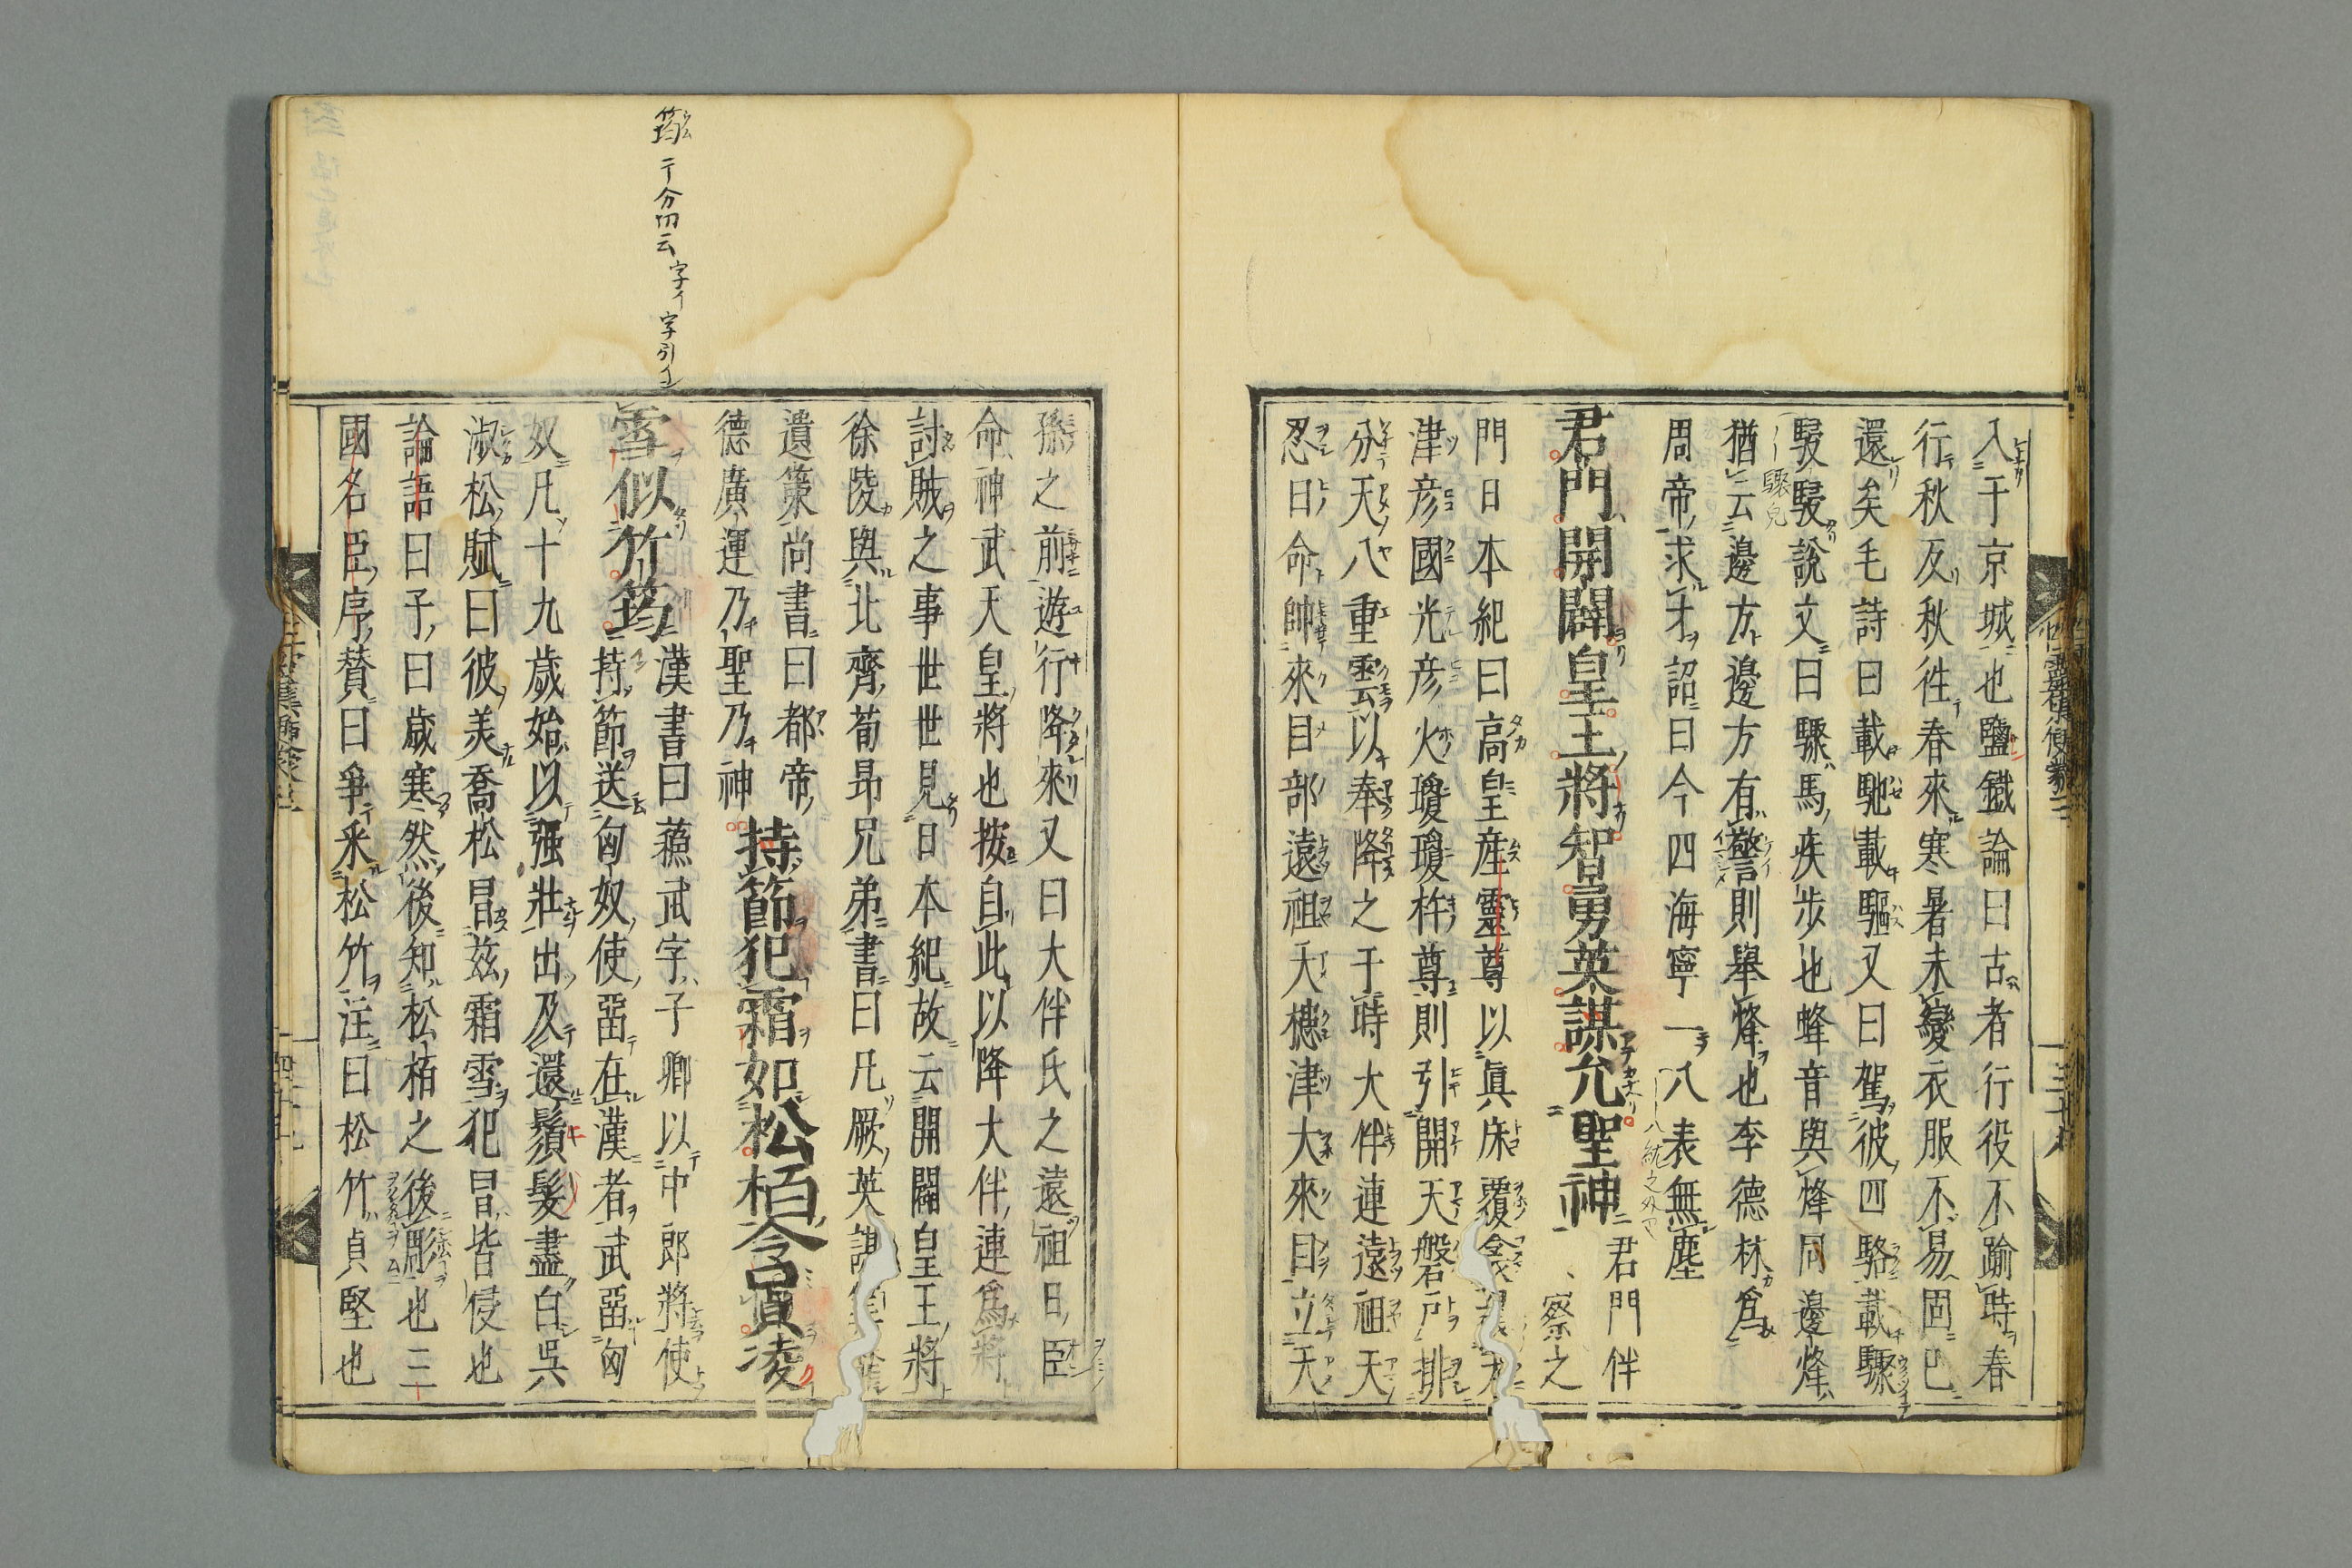 入于京城也鹽鐵論曰古者行役不踰時春
行秋反秋徃春來寒暑未變衣服不易固已
還矣毛詩曰載馳載驅又曰駕彼四駱載驟
駸駸說文曰驟馬疾步也蜂音與烽同邊烽
猶云邊方邊方有警則舉烽也李德林爲
周帝求才詔曰今四海寧一八表無塵
君門開闢皇王將智勇英謀允聖神
君門伴
察之
門日本紀曰高皇產靈尊以眞床覆衾
津彦國光彦火瓊瓊杵尊則引開天磐戸排
分天八重雲以奉降之于時大伴連遠祖天
忍日命帥來目部遠祖天槵津大來目立天
孫之前遊行降來又曰大伴氏之遠祖日臣
命神武天皇將也按自此以降大伴連爲將
討賊之事世世見日本紀故云開闢皇王將
徐陵與北齊荀昂兄弟書曰凡厥英謀
遺策尚書曰都帝
德廣運乃聖乃神
持節犯霜如松栢含貞凌
雪似竹筠
漢書曰蘓武字子卿以中郎將使
持節送匈奴使畱在漢者武畱匈
奴凡十九歲始以强壯出及還鬚髮盡白吳
淑松賦曰彼美喬松冒茲霜雪犯冒皆侵也
論語曰子曰歲寒然後知松栢之後彫也三
國名臣序贊曰爭釆松竹注曰松竹貞堅也